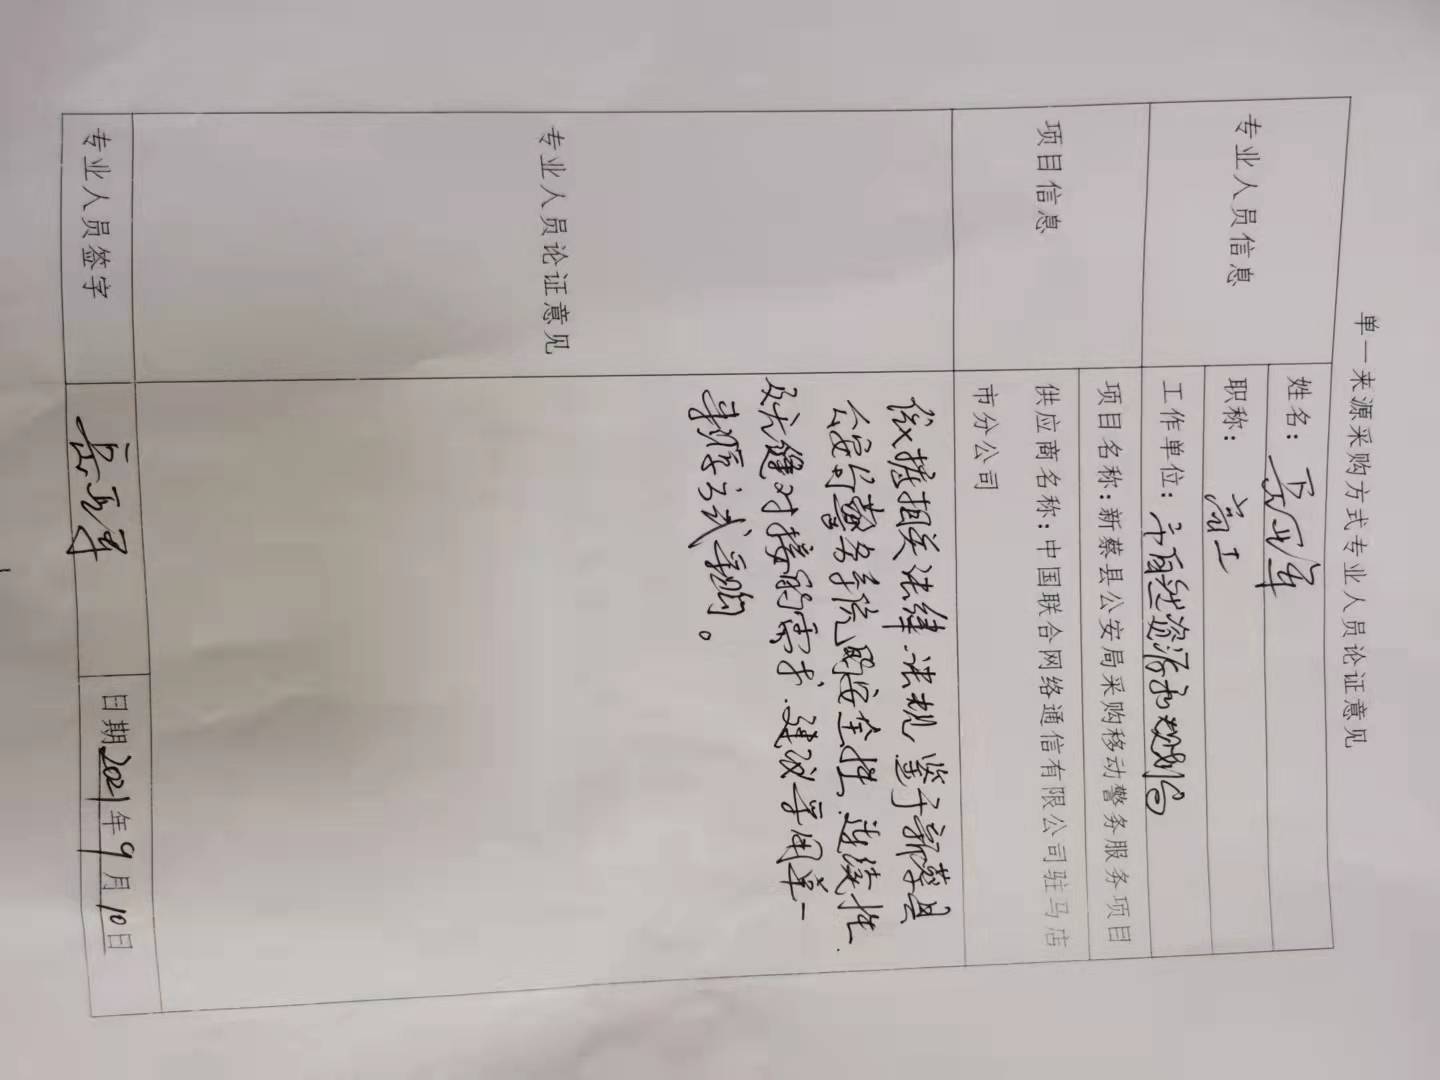 单一来源采购方式专业人员论证意见
专业人员信息
姓名：
职称：高工
工作单位：市自然资源和规划局
项目信息
项目名称：新蔡县公安局采购移动警务服务项目
供应商名称：中国联合网络通信有限公司驻马店
市分公司
专业人员论证意见
依据相关法律、法规，鉴于新蔡县
公安局警务系统的安全性、连续性
及无缝对接的需求，建议采用单一
来源方式采购。
专业人员签字
日期2021年9月10日